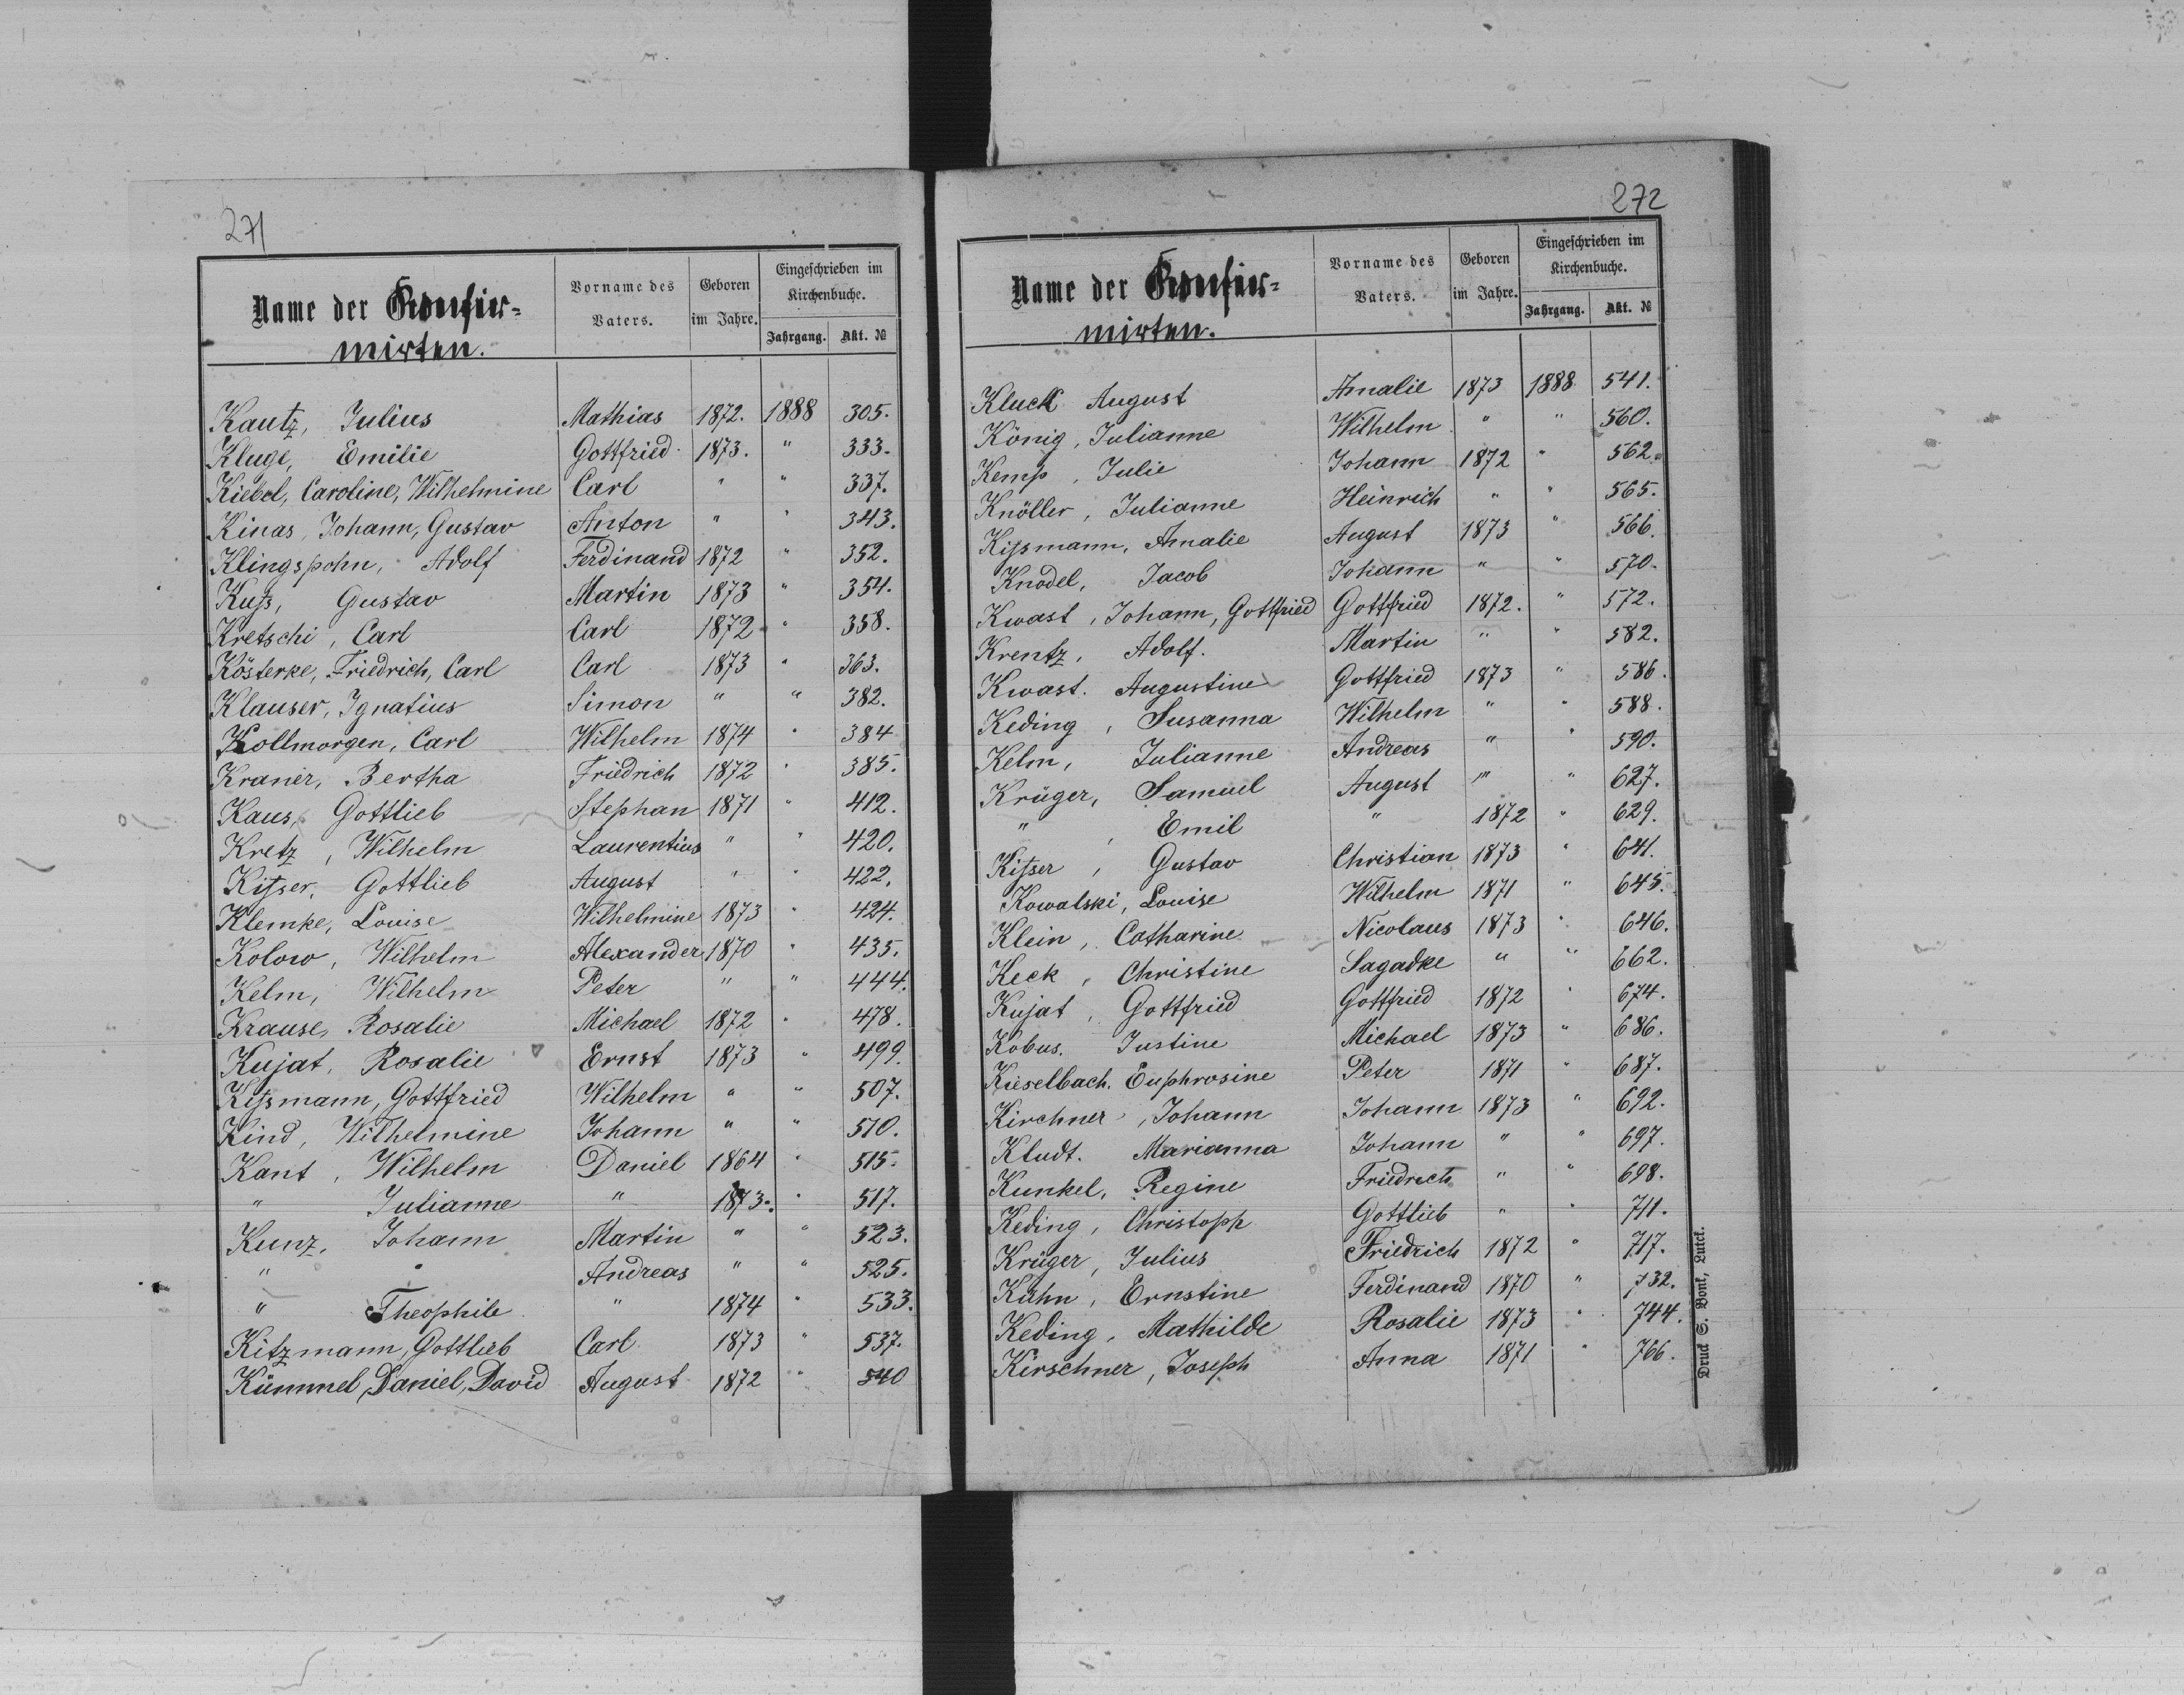 271
Name der Konfir-
mirten.
Vorname des Vaters.
Geboren im Jahre.
Eingeschrieben im Kirchenbuche.
Jahrgang. Akt. №
Kautz, Julius Mathias 1872. 1888 305.
Kluge, Emilie Gottfried 1873. " 333.
Kiebel, Caroline, Wilhelmine Carl " " 337.
Kinas, Johann, Gustav Anton " " 343.
Klingspohn, Adolf Ferdinand 1872 " 352.
Kuß, Gustav Martin 1873 " 354.
Kretschi, Carl Carl 1872 " 358.
Kösterke, Friedrich, Carl Carl 1873 " 363.
Klauser, Ignatius Simon " " 382.
Kollmorgen, Carl Wilhelm 1874 " 384
Kraner, Bertha Friedrich 1872 " 385.
Kaus, Gottlieb Stephan 1871 " 412.
Kretz, Wilhelm Laurentius " " 420.
Kißer, Gottlieb August " " 422.
Klemke, Louise Wilhelmine 1873 " 424.
Kolow, Wilhelm Alexander 1870 " 435.
Kelm, Wilhelm Peter " " 444.
Krause, Rosalie Michael 1872 " 478.
Kujat, Rosalie Ernst 1873 " 499.
Kißmann, Gottfried Wilhelm " " 507.
Kind, Wilhelmine Johann " " 510.
Kant, Wilhelm Daniel 1864 " 515.
" Julianne " 1873. " 517.
Kunz, Johann Martin " " 523.
" " Andreas " " 525.
" Theophile " 1874 " 533.
Kitzmann, Gottlieb Carl 1873 " 537.
Kümmel, Daniel, David August 1872 " 540
272
Name der Konfir-
mirten.
Vorname des Vaters.
Geboren im Jahre.
Eingeschrieben im Kirchenbuche.
Jahrgang. Akt. №
Kluck August Amalie 1873 1888 541.
König, Julianne Wilhelm " " 560.
Kemp, Julie Johann 1872 " 562.
Knöller, Julianne Heinrich " " 565.
Kißmann, Amalie August 1873 " 566.
Knodel, Jacob Johann " " 570.
Kwast, Johann, Gottfried Gottfried 1872. " 572.
Krentz, Adolf. Martin " " 582.
Kwast. Augustine Gottfried 1873 " 586.
Keding, Susanna Wilhelm " " 588.
Kelm, Julianne Andreas " " 590.
Krüger, Samuel August " " 627.
" , Emil " 1872 " 629.
Kißer, Gustav Christian 1873 " 641.
Kowalski, Louise Wilhelm 1871 " 645.
Klein, Catharine Nicolaus 1873 " 646.
Keck, Christine Sagadke " " 662.
Kujat, Gottfried Gottfried 1872 " 674.
Kobus. Justine Michael 1873 " 686.
Kieselbach. Euphrosine Peter 1871 " 687.
Kirchner, Johann Johann 1873 " 692.
Kludt. Marianna Johann " " 697.
Kunkel, Regine Friedrich " " 698.
Keding, Christoph Gottlieb " " 711.
Krüger, Julius Friedrich 1872 " 717.
Kühn, Ernstine Ferdinand 1870 " 732.
Keding, Mathilde Rosalie 1873 " 744.
Kirschner, Joseph Anna 1871 " 766.
Druck S. Bonk, Luzk.